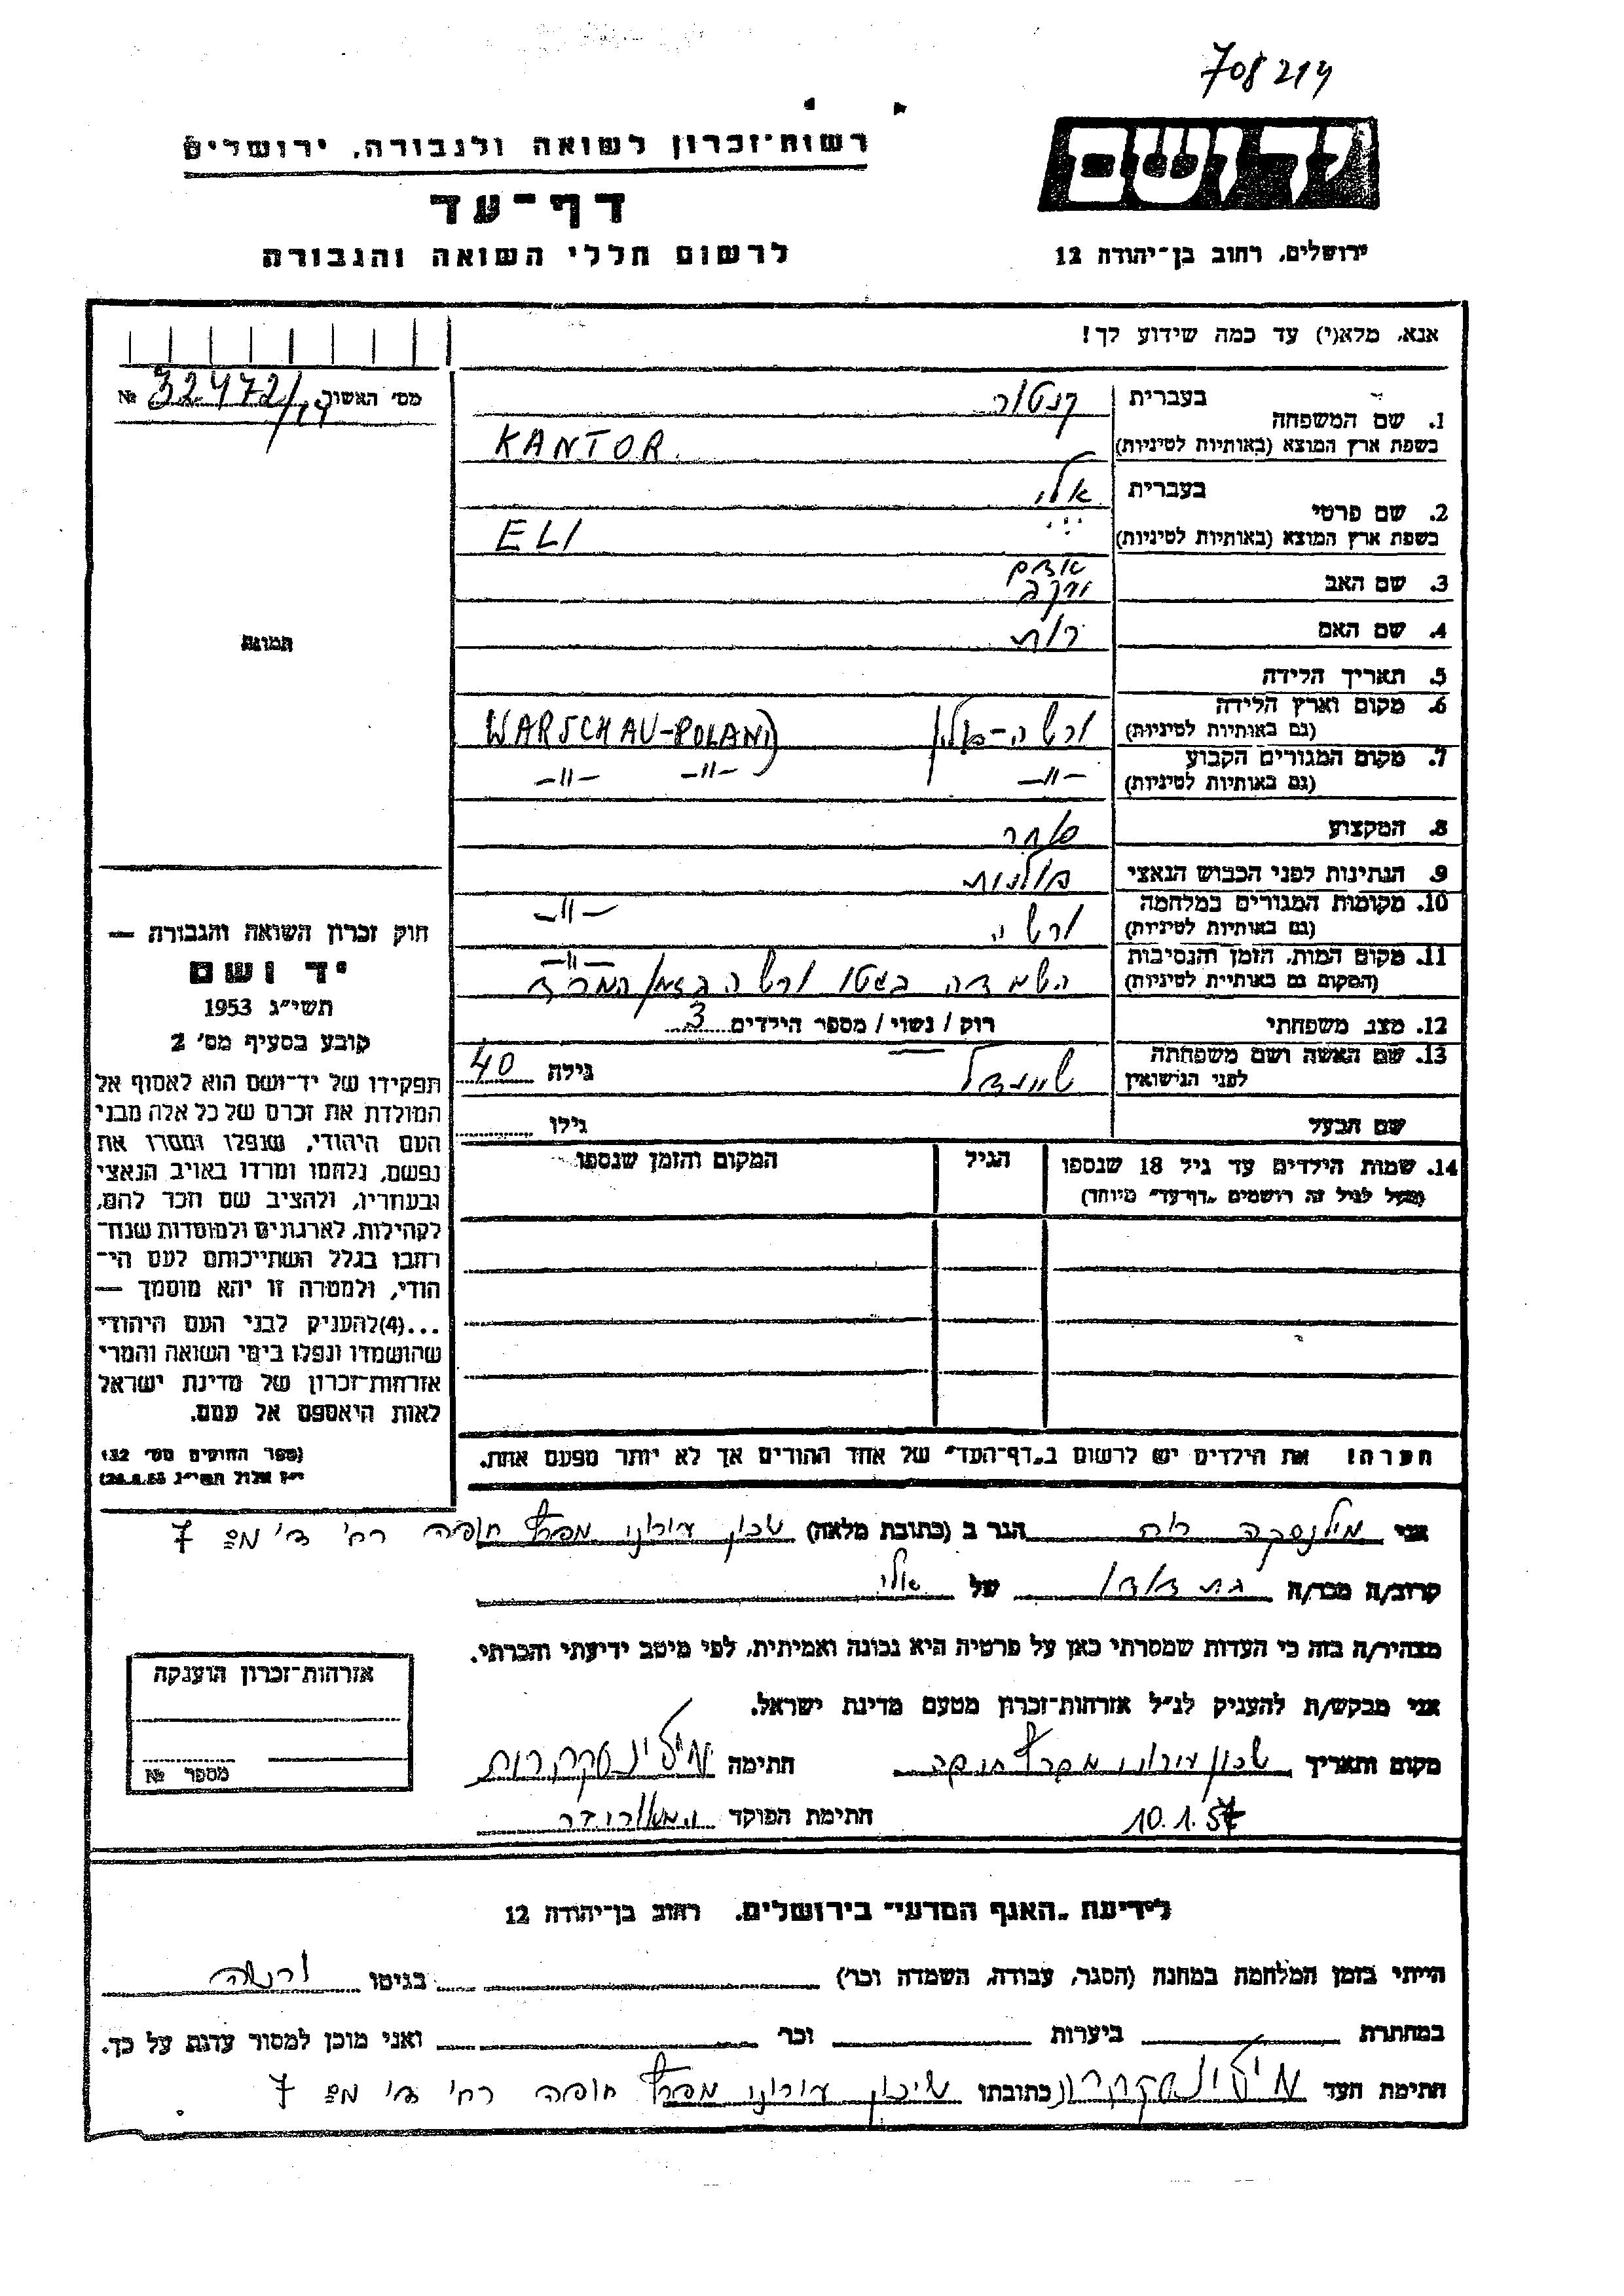 708214
רשות־זכרון לשואה ולגבורה, ירושלים
יד ושם
דף־עד
לרשום חללי השואה והגבורה
ירושלים, רחוב בן־יהודה 12
אנא, מלא(י) עד כמה שידוע לך!
מס׳ האשור 32472/14 №
1. שם המשפחה
בעברית קנטור
בשפת ארץ המוצא (באותיות לטיניות) KANTOR
2. שם פרטי
בעברית אלי
בשפת ארץ המוצא (באותיות לטיניות) ELI
3. שם האב
4. שם האם רות
5. תאריך הלידה
6. מקום וארץ הלידה (גם באותיות לטיניות) ורשה-פולין WARSCHAU-POLAND
7. מקום המגורים הקבוע (גם באותיות לטיניות) -"- -"- -"-
8. המקצוע סוחר
9. הנתינות לפני הכבוש הנאצי פולנית
10. מקומות המגורים במלחמה (גם באותיות לטיניות) ורשה -"-
11. מקום המות, הזמן והנסיבות (המקום גם באותיית לטיניות) השמדה בגטו ורשה בזמן המרד -"-
12. מצב משפחתי רוק / נשוי / מספר הילדים 3
13. שם האשה ושם משפחתה לפני הנישואין שיינדל גילה 40
שם הבעל גילו
14. שמות הילדים עד גיל 18 שנספו הגיל המקום והזמן שנספו
(מעל לגיל זה רושמים „דף־עד״ מיוחד)
הערה! את הילדים יש לרשום ב„דף־העד״ של אחד ההורים אך לא יותר מפעם אחת.
תמונה
חוק זכרון השואה והגבורה —
יד ושם
תשי״ג 1953
קובע בסעיף מס׳ 2
תפקידו של יד־ושם הוא לאסוף אל
המולדת את זכרם של כל אלה מבני
העם היהודי, שנפלו ומסרו את
נפשם, נלחמו ומרדו באויב הנאצי
ובעוזריו, ולהציב שם וזכר להם,
לקהילות, לארגונים ולמוסדות שנח־
רחבו בגלל השתייכותם לעם הי־
הודי, ולמטרה זו יהא מוסמך —
...(4)להעניק לבני העם היהודי
שהושמדו ונפלו בימי השואה והמרי
אזרחות־זכרון של מדינת ישראל
לאות היאספם אל עמם.
(ספר החוקים מס׳ 132
י״ז אלול תשי״ג 28.8.53)
אני מילנסקה רות הגר ב (כתובת מלאה) שכון עירוני מפרץ חיפה רח׳ ד׳ מס 7
קרוב/ה מכר/ה בת דודו של אלי
מצהיר/ה בזה כי העדות שמסרתי כאן על פרטיה היא נכונה ואמיתית, לפי מיטב ידיעתי והכרתי.
אני מבקש/ת להעניק לנ״ל אזרחות־זכרון מטעם מדינת ישראל.
מקום ותאריך שכון עירוני מפרץ חיפה חתימה
10.1.57 חתימת הפוקד
אזרחות־זכרון הוענקה
מספר №
לידיעת „האגף המדעי״ בירושלים. רחוב בן־יהודה 12
הייתי בזמן המלחמה במחנה (הסגר, עבודה, השמדה וכו׳) בגיטו ורשה
במחתרת ביערות וכו׳ ואני מוכן למסור עדות על כך.
חתימת העד כתובתו שיכון עירוני מפרץ חיפה רח׳ ד׳ מס 7